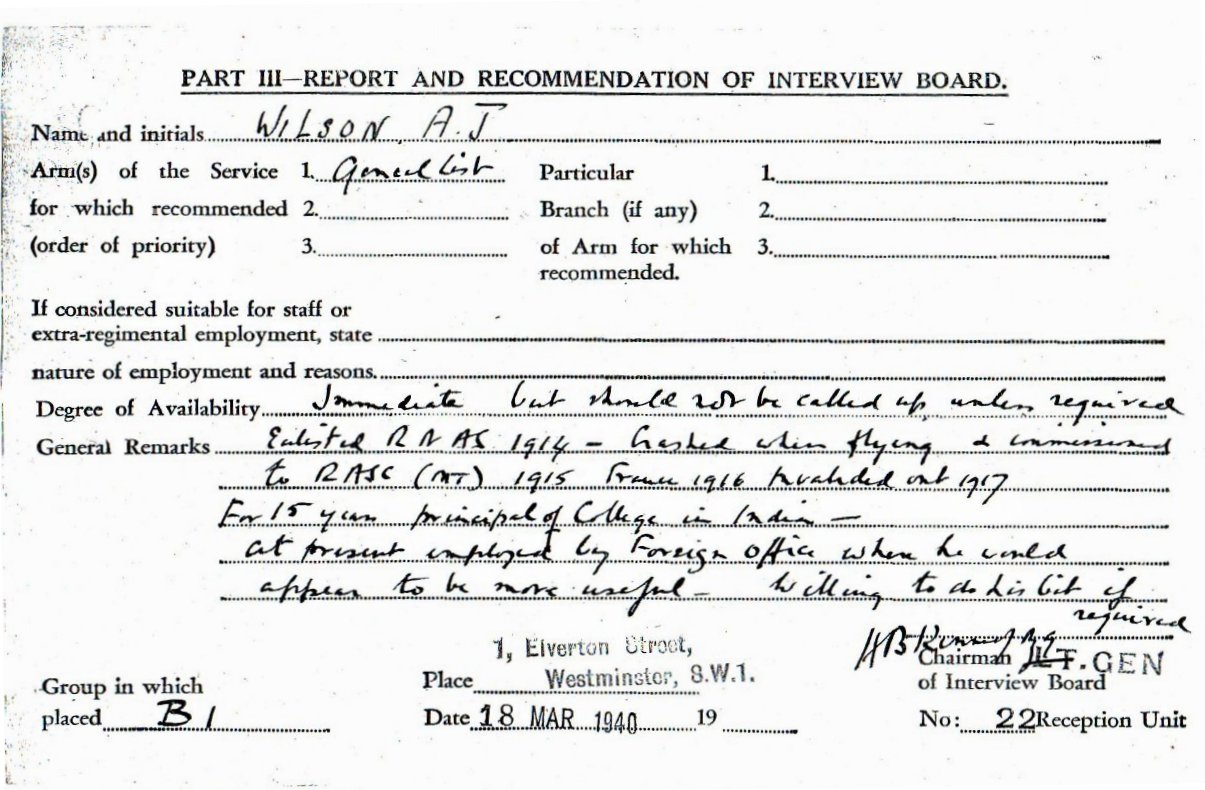 PART III—REPORT AND RECOMMENDATION OF INTERVIEW BOARD.
Name and initials WILSON, A.J
Arm(s) of the Service 1. General List Particular 1.
for which recommended 2. Branch (if any) 2.
(order of priority) 3. of Arm for which 3.
recommended.
If considered suitable for staff or
extra-regimental employment, state
nature of employment and reasons.
Degree of Availability Immediate but should not be called up unless required
General Remarks Enlisted RNAS 1914 – Crashed when flying & commissioned
to RASC (MT) 1915 France 1916 Invalided out 1917
For 15 years principal of College in India –
at present employed by Foreign Office where he would
appear to be more useful – Willing to do his bit if
required
1, Elverton Street,
Chairman LT. GEN
Place Westminster, S.W.1.
of Interview Board
Group in which
placed B1 Date 18 MAR 1940 19 No: 22 Reception Unit